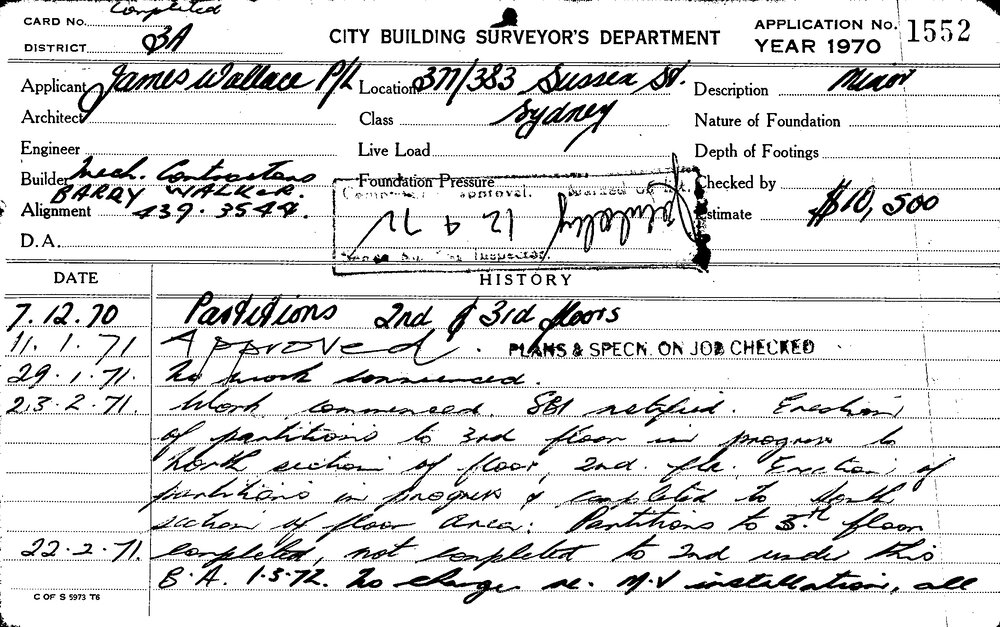 Completed
CARD No.
DISTRICT 3A
CITY BUILDING SURVEYOR'S DEPARTMENT
APPLICATION No. 1552
YEAR 1970
Applicant James Wallace P/L
Location 377/383 Sussex St.
Description Minor
Architect
Class Sydney
Nature of Foundation
Engineer
Live Load
Depth of Footings
Builder Mech. Contractors
Foundation Pressure
Checked by
BARRY WALKER.
Alignment 439.3544.
approval.
12 4 72
Inspector.
Estimate $10,500
D.A.
DATE HISTORY
7.12.70 Partitions 2nd & 3rd floors
11.1.71 Approved. PLANS & SPECN. ON JOB CHECKED
29.1.71. No work commenced.
23.2.71. Work commenced. SBI notified. Erection
of partitions to 3rd floor in progress to
North section of floor, 2nd. flr. Erection of
partitions in progress & completed to North
section of floor area. Partitions to 3rd floor
22.2.71. completed, not completed to 2nd under this
B.A. 1.3.72. No change re. M.V installation, all
C OF S 5973 T6